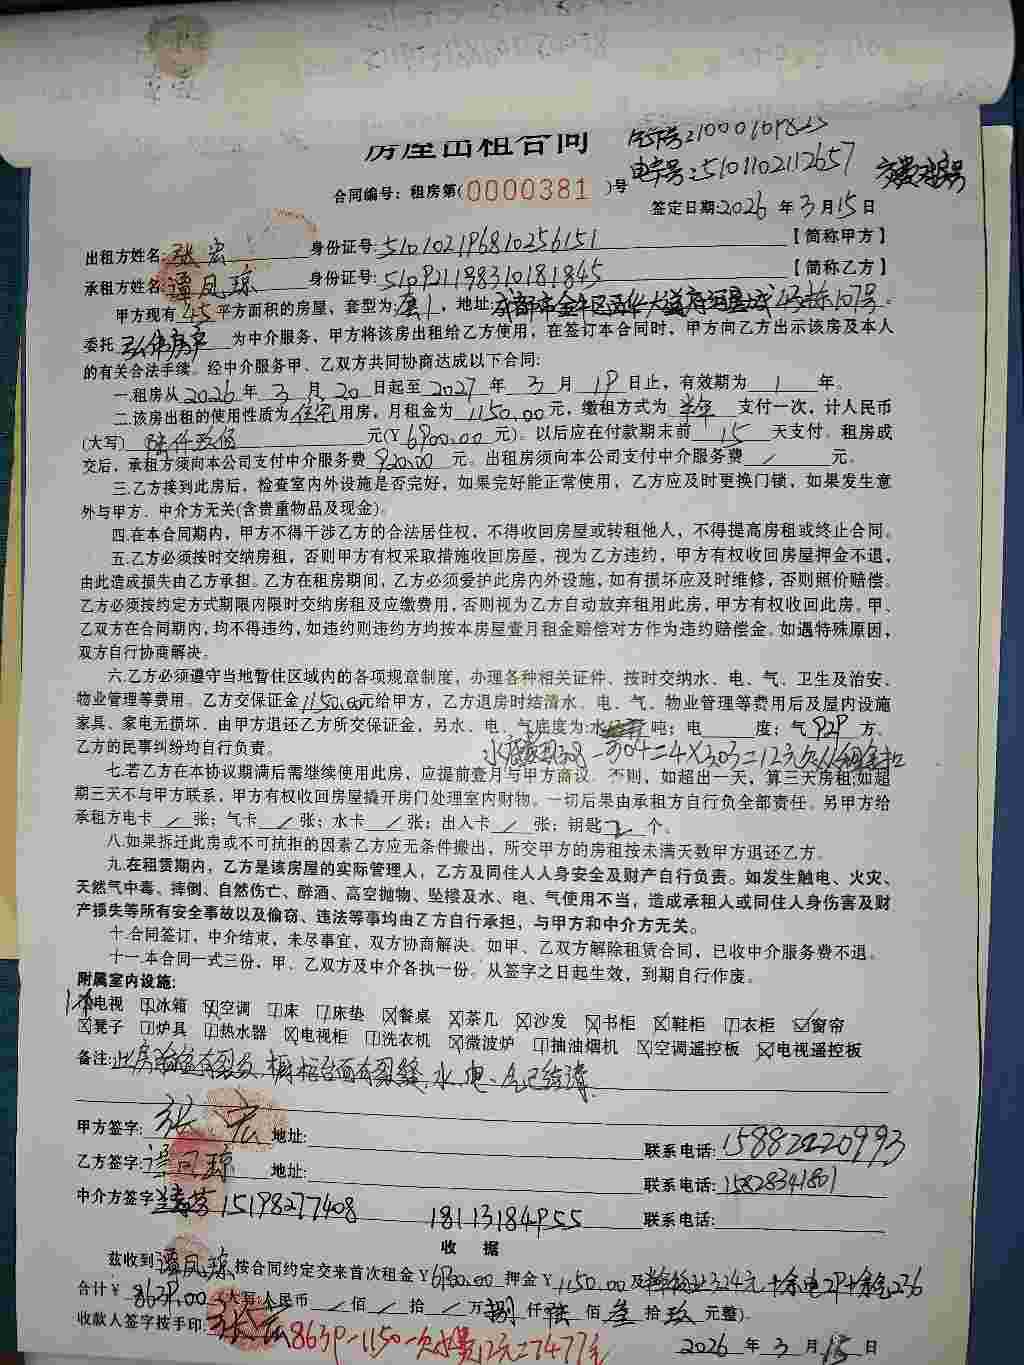 房屋出租合同
气号:2100016982
电字号:5101102112657
合同编号:租房第(0000381)号
签定日期:2026 年 3 月 15 日
出租方姓名:张宏 身份证号:510102196810256151 【简称甲方】
承租方姓名:谭凤琼 身份证号: 【简称乙方】
甲方现有45平方面积的房屋,套型为 ,地址:成都市金牛区 107号.
委托 为中介服务,甲方将该房出租给乙方使用,在签订本合同时,甲方向乙方出示该房及本人
的有关合法手续。经中介服务甲、乙双方共同协商达成以下合同:
一.租房从2026年 3 月 20 日起至 2027 年 3 月 19 日止,有效期为 1 年。
二.该房出租的使用性质为住宅用房,月租金为 1150.00元,缴租方式为 半年 支付一次,计人民币
(大写) 陆仟玖佰 元(¥6900.00元)。以后应在付款期末前 15 天支付。租房成
交后,承租方须向本公司支付中介服务费 920.00 元。出租房须向本公司支付中介服务费 / 元。
三.乙方接到此房后,检查室内外设施是否完好,如果完好能正常使用,乙方应及时更换门锁,如果发生意
外与甲方、中介方无关(含贵重物品及现金)。
四.在本合同期内,甲方不得干涉乙方的合法居住权,不得收回房屋或转租他人,不得提高房租或终止合同。
五.乙方必须按时交纳房租,否则甲方有权采取措施收回房屋,视为乙方违约,甲方有权收回房屋押金不退,
由此造成损失由乙方承担。乙方在租房期间,乙方必须爱护此房内外设施,如有损坏应及时维修,否则照价赔偿。
乙方必须按约定方式期限内限时交纳房租及应缴费用,否则视为乙方自动放弃租用此房,甲方有权收回此房。甲、
乙双方在合同期内,均不得违约,如违约则违约方均按本房屋壹月租金赔偿对方作为违约赔偿金。如遇特殊原因,
双方自行协商解决。
六.乙方必须遵守当地暂住区域内的各项规章制度,办理各种相关证件、按时交纳水、电、气、卫生及治安、
物业管理等费用。乙方交保证金1150.00元给甲方,乙方退房时结清水、电、气、物业管理等费用后及屋内设施
家具、家电无损坏、由甲方退还乙方所交保证金,另水、电、气底度为:水 吨;电 度;气 929 方、
乙方的民事纠纷均自行负责。
水底数308-304=4×3.03=12元
七.若乙方在本协议期满后需继续使用此房,应提前壹月与甲方商议。否则,如超出一天,算三天房租;如超
期三天不与甲方联系,甲方有权收回房屋撬开房门处理室内财物。一切后果由承租方自行负全部责任。另甲方给
承租方电卡 / 张;气卡 / 张;水卡 / 张;出入卡 / 张;钥匙 2 个。
八.如果拆迁此房或不可抗拒的因素乙方应无条件搬出,所交甲方的房租按未满天数甲方退还乙方。
九.在租赁期内,乙方是该房屋的实际管理人,乙方及同住人人身安全及财产自行负责。如发生触电、火灾、
天然气中毒、摔倒、自然伤亡、醉酒、高空抛物、坠楼及水、电、气使用不当,造成承租人或同住人身伤害及财
产损失等所有安全事故以及偷窃、违法等事均由乙方自行承担,与甲方和中介方无关。
十.合同签订,中介结束,未尽事宜,双方协商解决。如甲、乙双方解除租赁合同,已收中介服务费不退。
十一.本合同一式三份,甲、乙双方及中介各执一份。从签字之日起生效,到期自行作废。
附属室内设施:
电视 冰箱 空调 床 床垫 餐桌 茶几 沙发 书柜 鞋柜 衣柜 窗帘
凳子 炉具 热水器 电视柜 洗衣机 微波炉 抽油烟机 空调遥控板 电视遥控板
备注:此房 有裂纹,橱柜台面有裂缝,水、电、气已结清.
甲方签字:张宏 地址: 联系电话:15882220993
乙方签字:谭凤琼 地址: 联系电话:15828341801
中介方签字: 15198277408 18113184955 联系电话:
收 据
兹收到谭凤琼按合同约定交来首次租金¥6900.00 押金¥1150.00及
合计¥8639.00 大写:人民币 / 佰 / 拾 / 万 捌 仟 陆 佰 叁 拾 玖 元整).
收款人签字按手印:张宏 8639-1150-水费12元=7477元
2026 年 3 月 15 日